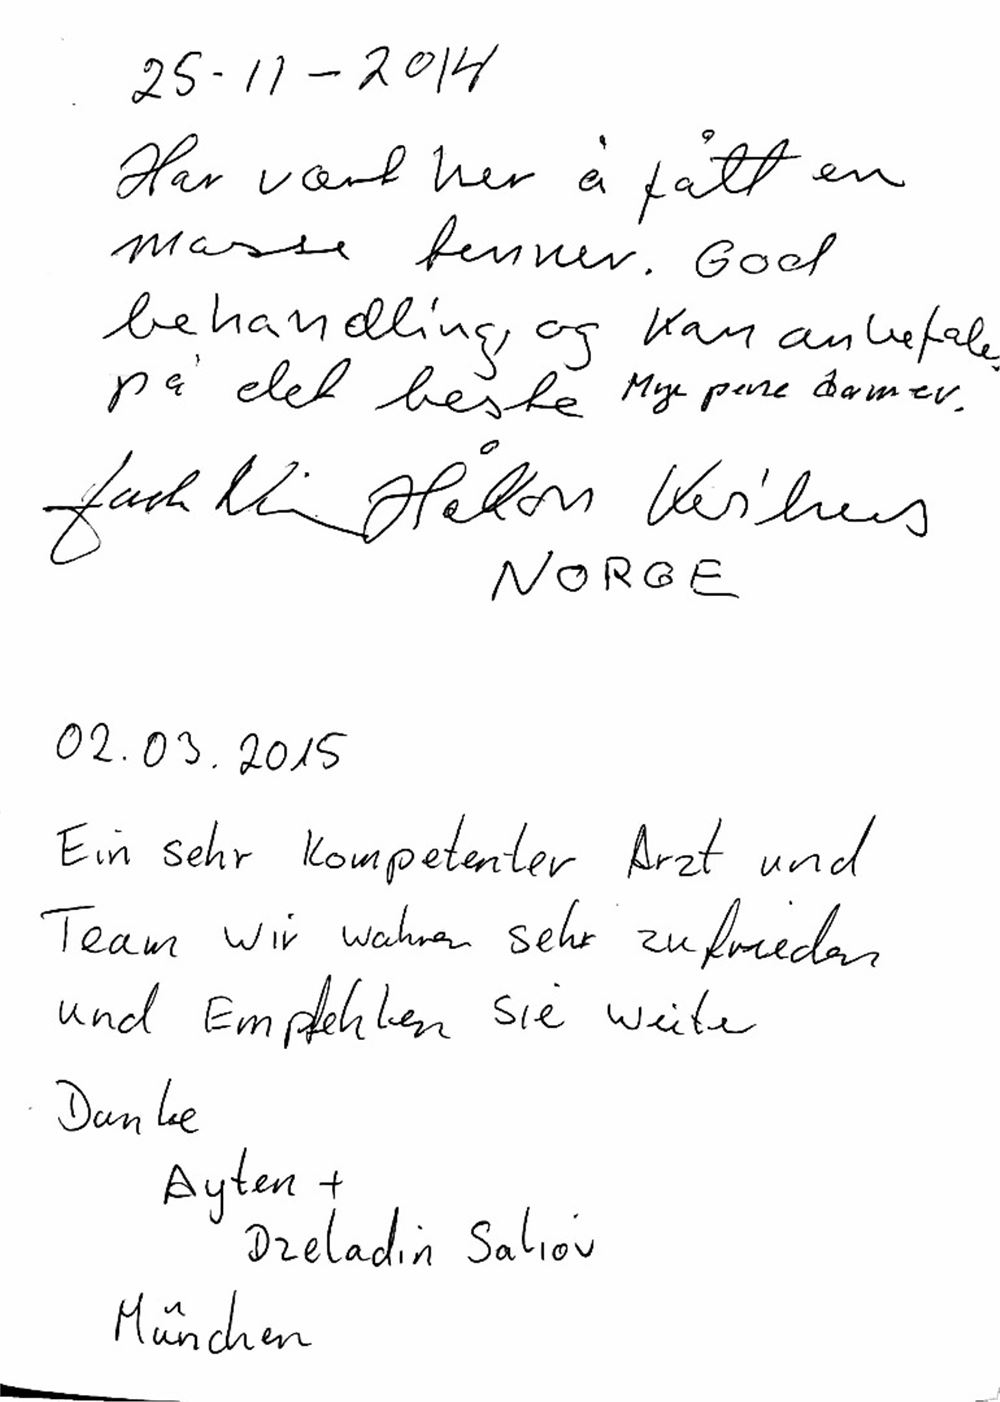 25-11-2014
Har vært her å fått en
masse tenner. God
behandling, og kan anbefales
på det beste Mye pene damer.
Håkon
NORGE
02.03.2015
Ein sehr kompetenter Arzt und
Team wir wahren sehr zufrieden
und Empfehlen sie weiter
Danke
Ayten +
Dzeladin Saliov
München